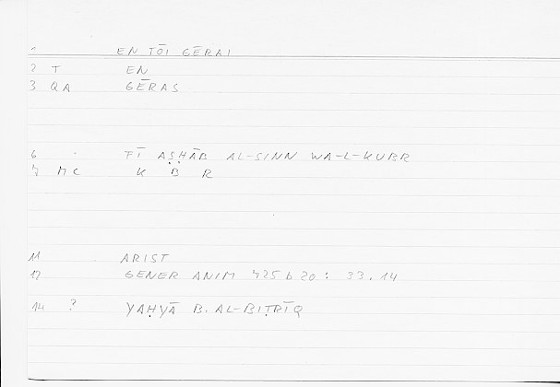 1 EN TŌI GĒRAI
2 T EN
3 QA GĒRAS
6 FĪ AṢḤĀB AL-SINN WA-L-KUBR
7 MC K B R
11 ARIST
12 GENER ANIM 725 b 20 : 33.14
14 ? YAḤYĀ B. AL-BIṬRĪQ